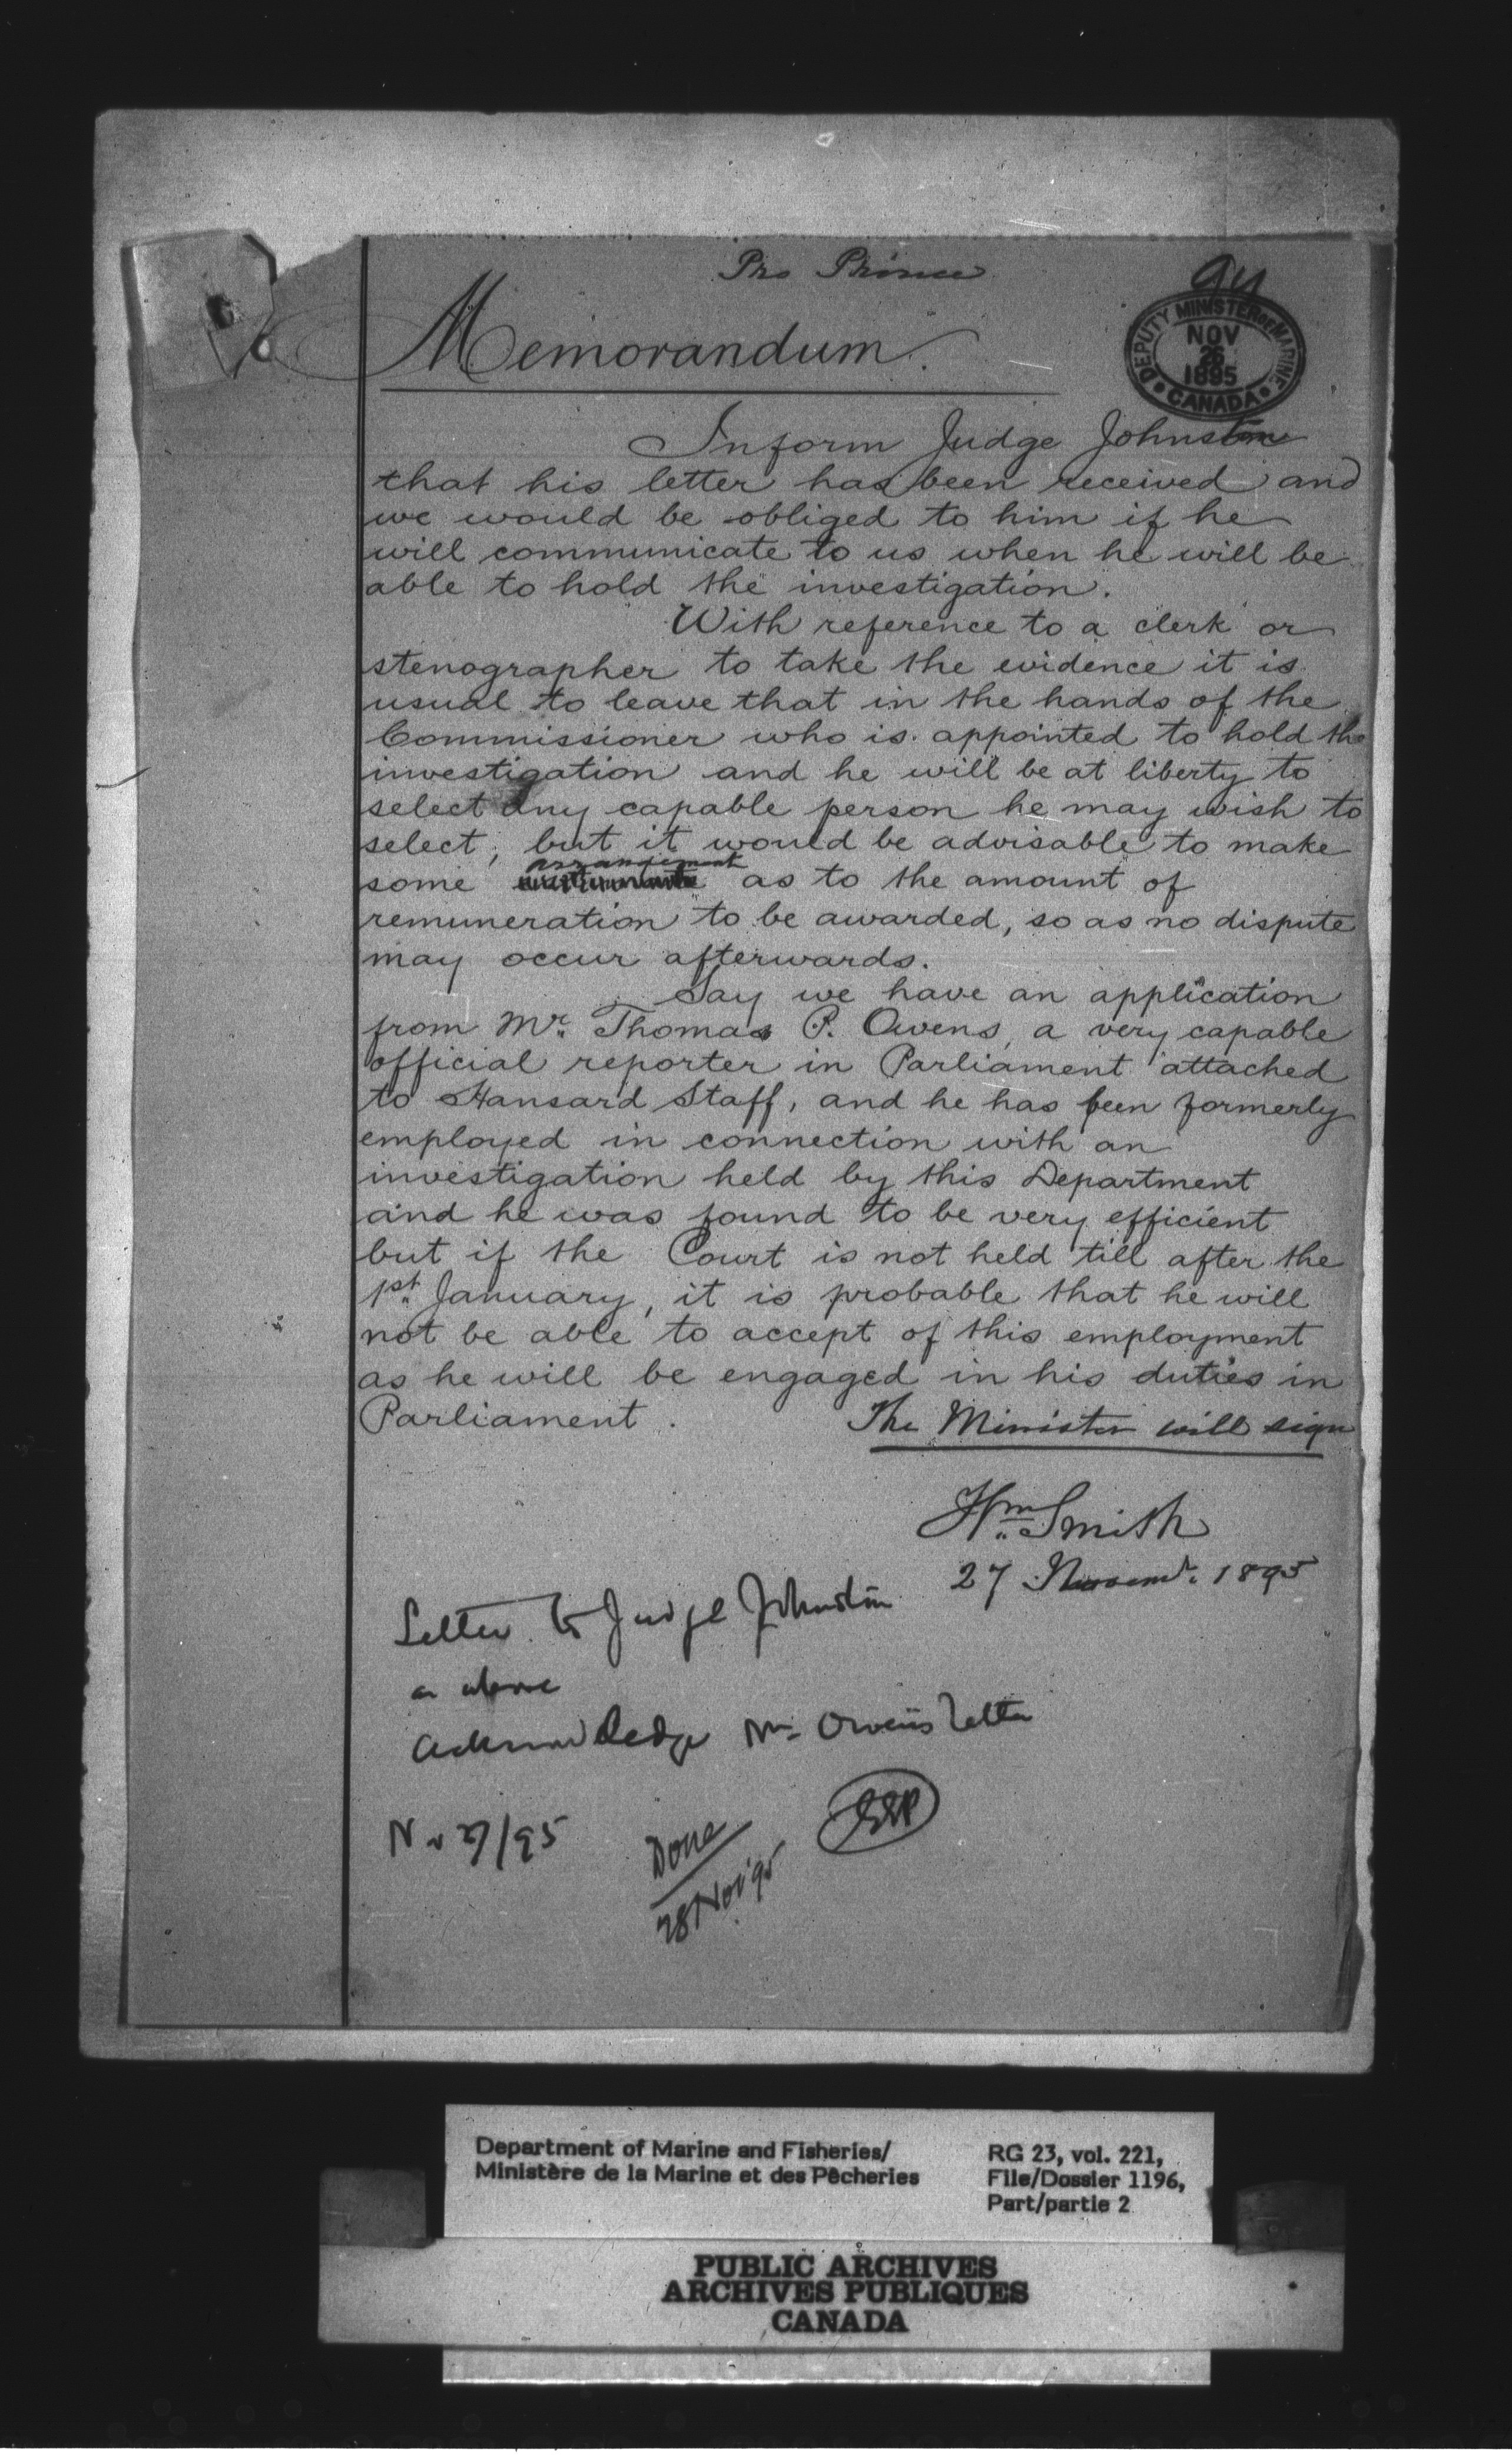 Pro Prince
94
DEPUTY MINISTER OF MARINE
NOV
26
1895
CANADA
Memorandum.
Inform Judge Johnstone
that his letter has been received and
we would be obliged to him if he
will communicate to us when he will be
able to hold the investigation.
With reference to a clerk or
stenographer to take the evidence it is
usual to leave that in the hands of the
Commissioner who is appointed to hold the
investigation and he will be at liberty to
select any capable person he may wish to
select; but it would be advisable to make
arrangement
some as to the amount of
remuneration to be awarded, so as no dispute
may occur afterwards.
Say we have an application
from Mr. Thomas P. Owens, a very capable
official reporter in Parliament attached
to Hansard Staff, and he has been formerly
employed in connection with an
investigation held by this Department
and he was found to be very efficient
but if the Court is not held till after the
1st. January, it is probable that he will
not be able to accept of this employment
as he will be engaged in his duties in
Parliament.
The Minister will sign
Wm. Smith
27 Novemr. 1895
Letter to Judge Johnston
as above
Acknowledge Mr Owens letter
Nov 27/95
Done
28 Nov 95
Department of Marine and Fisheries/
Ministère de la Marine et des Pêcheries
RG 23, vol. 221,
File/Dossier 1196,
Part/partie 2
PUBLIC ARCHIVES
ARCHIVES PUBLIQUES
CANADA